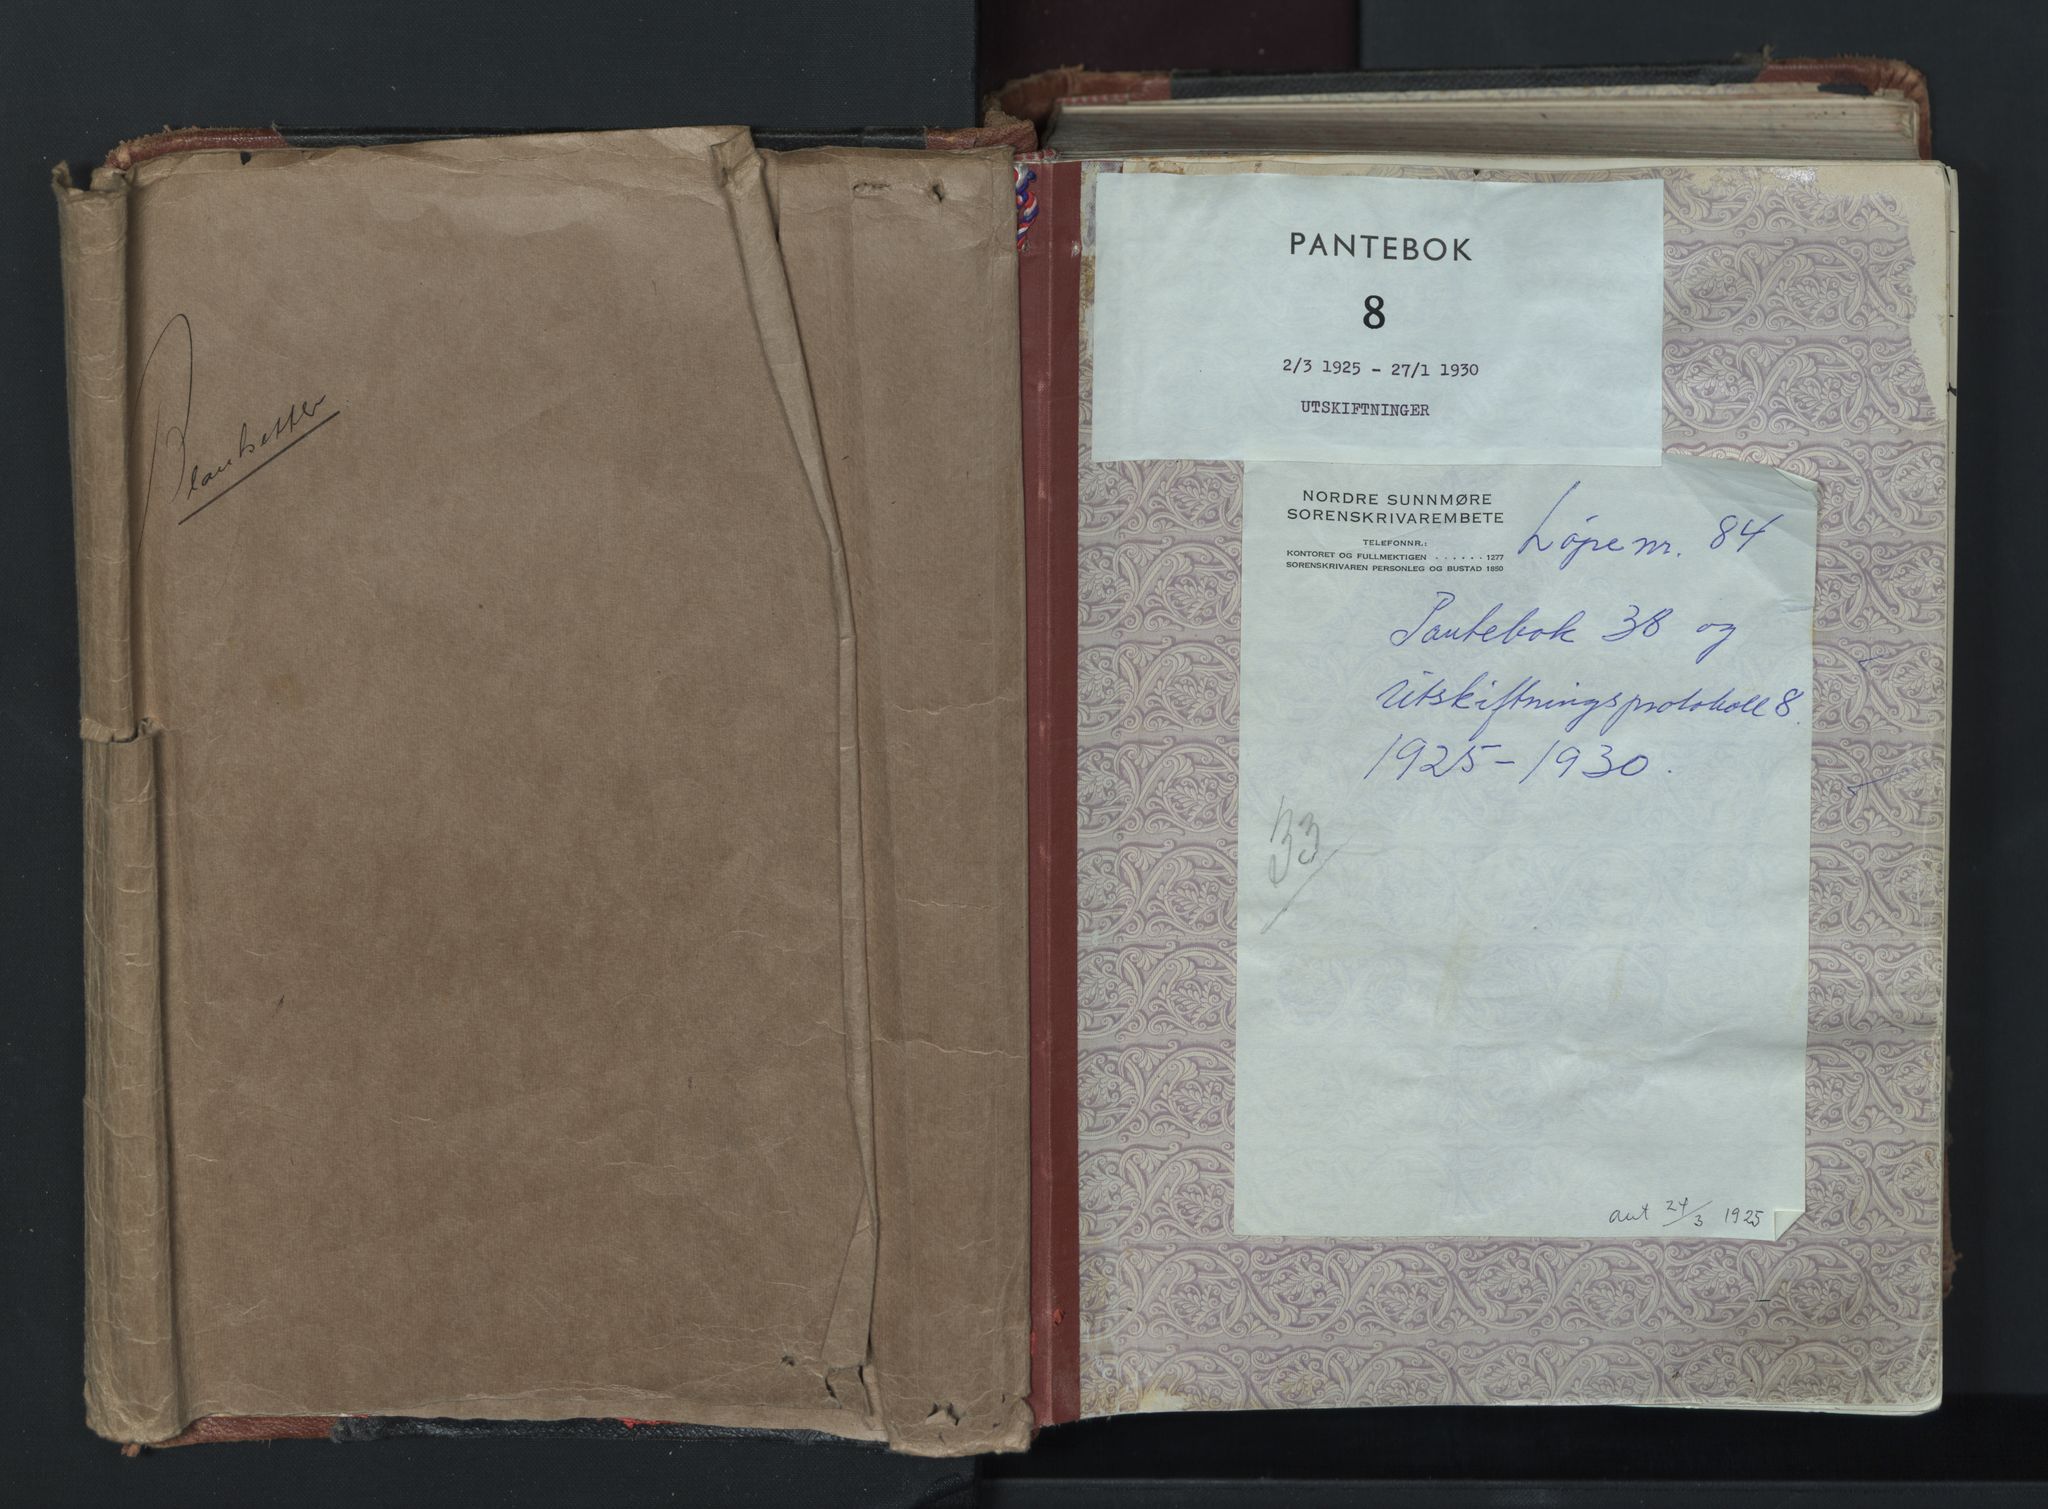 Blanketter
PANTEBOK
8
2/3 1925 - 27/1 1930
UTSKIFTNINGER
NORDRE SUNNMØRE
SORENSKRIVAREMBETE
TELEFONNR.:
KONTORET OG FULLMEKTIGEN . . . . . . 1277
SORENSKRIVAREN PERSONLEG OG BUSTAD 1850
Løpenr. 84
Pantebok 38 og
Utskiftningsprotokoll 8.
1925-1930.
33
aut 24/3 1925